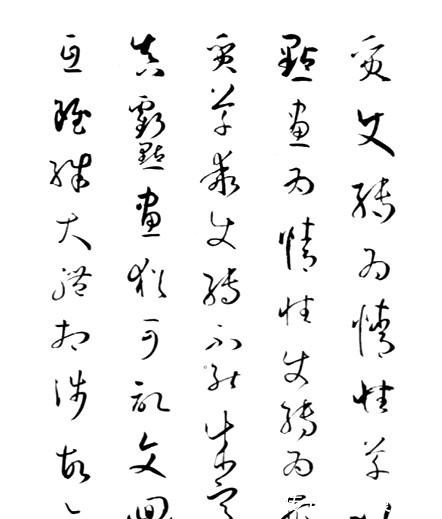 質使轉為情性草
點畫為情性使轉為
質草乖使轉不能成字
真虧點畫猶可記文迴
互雖殊大體相涉故